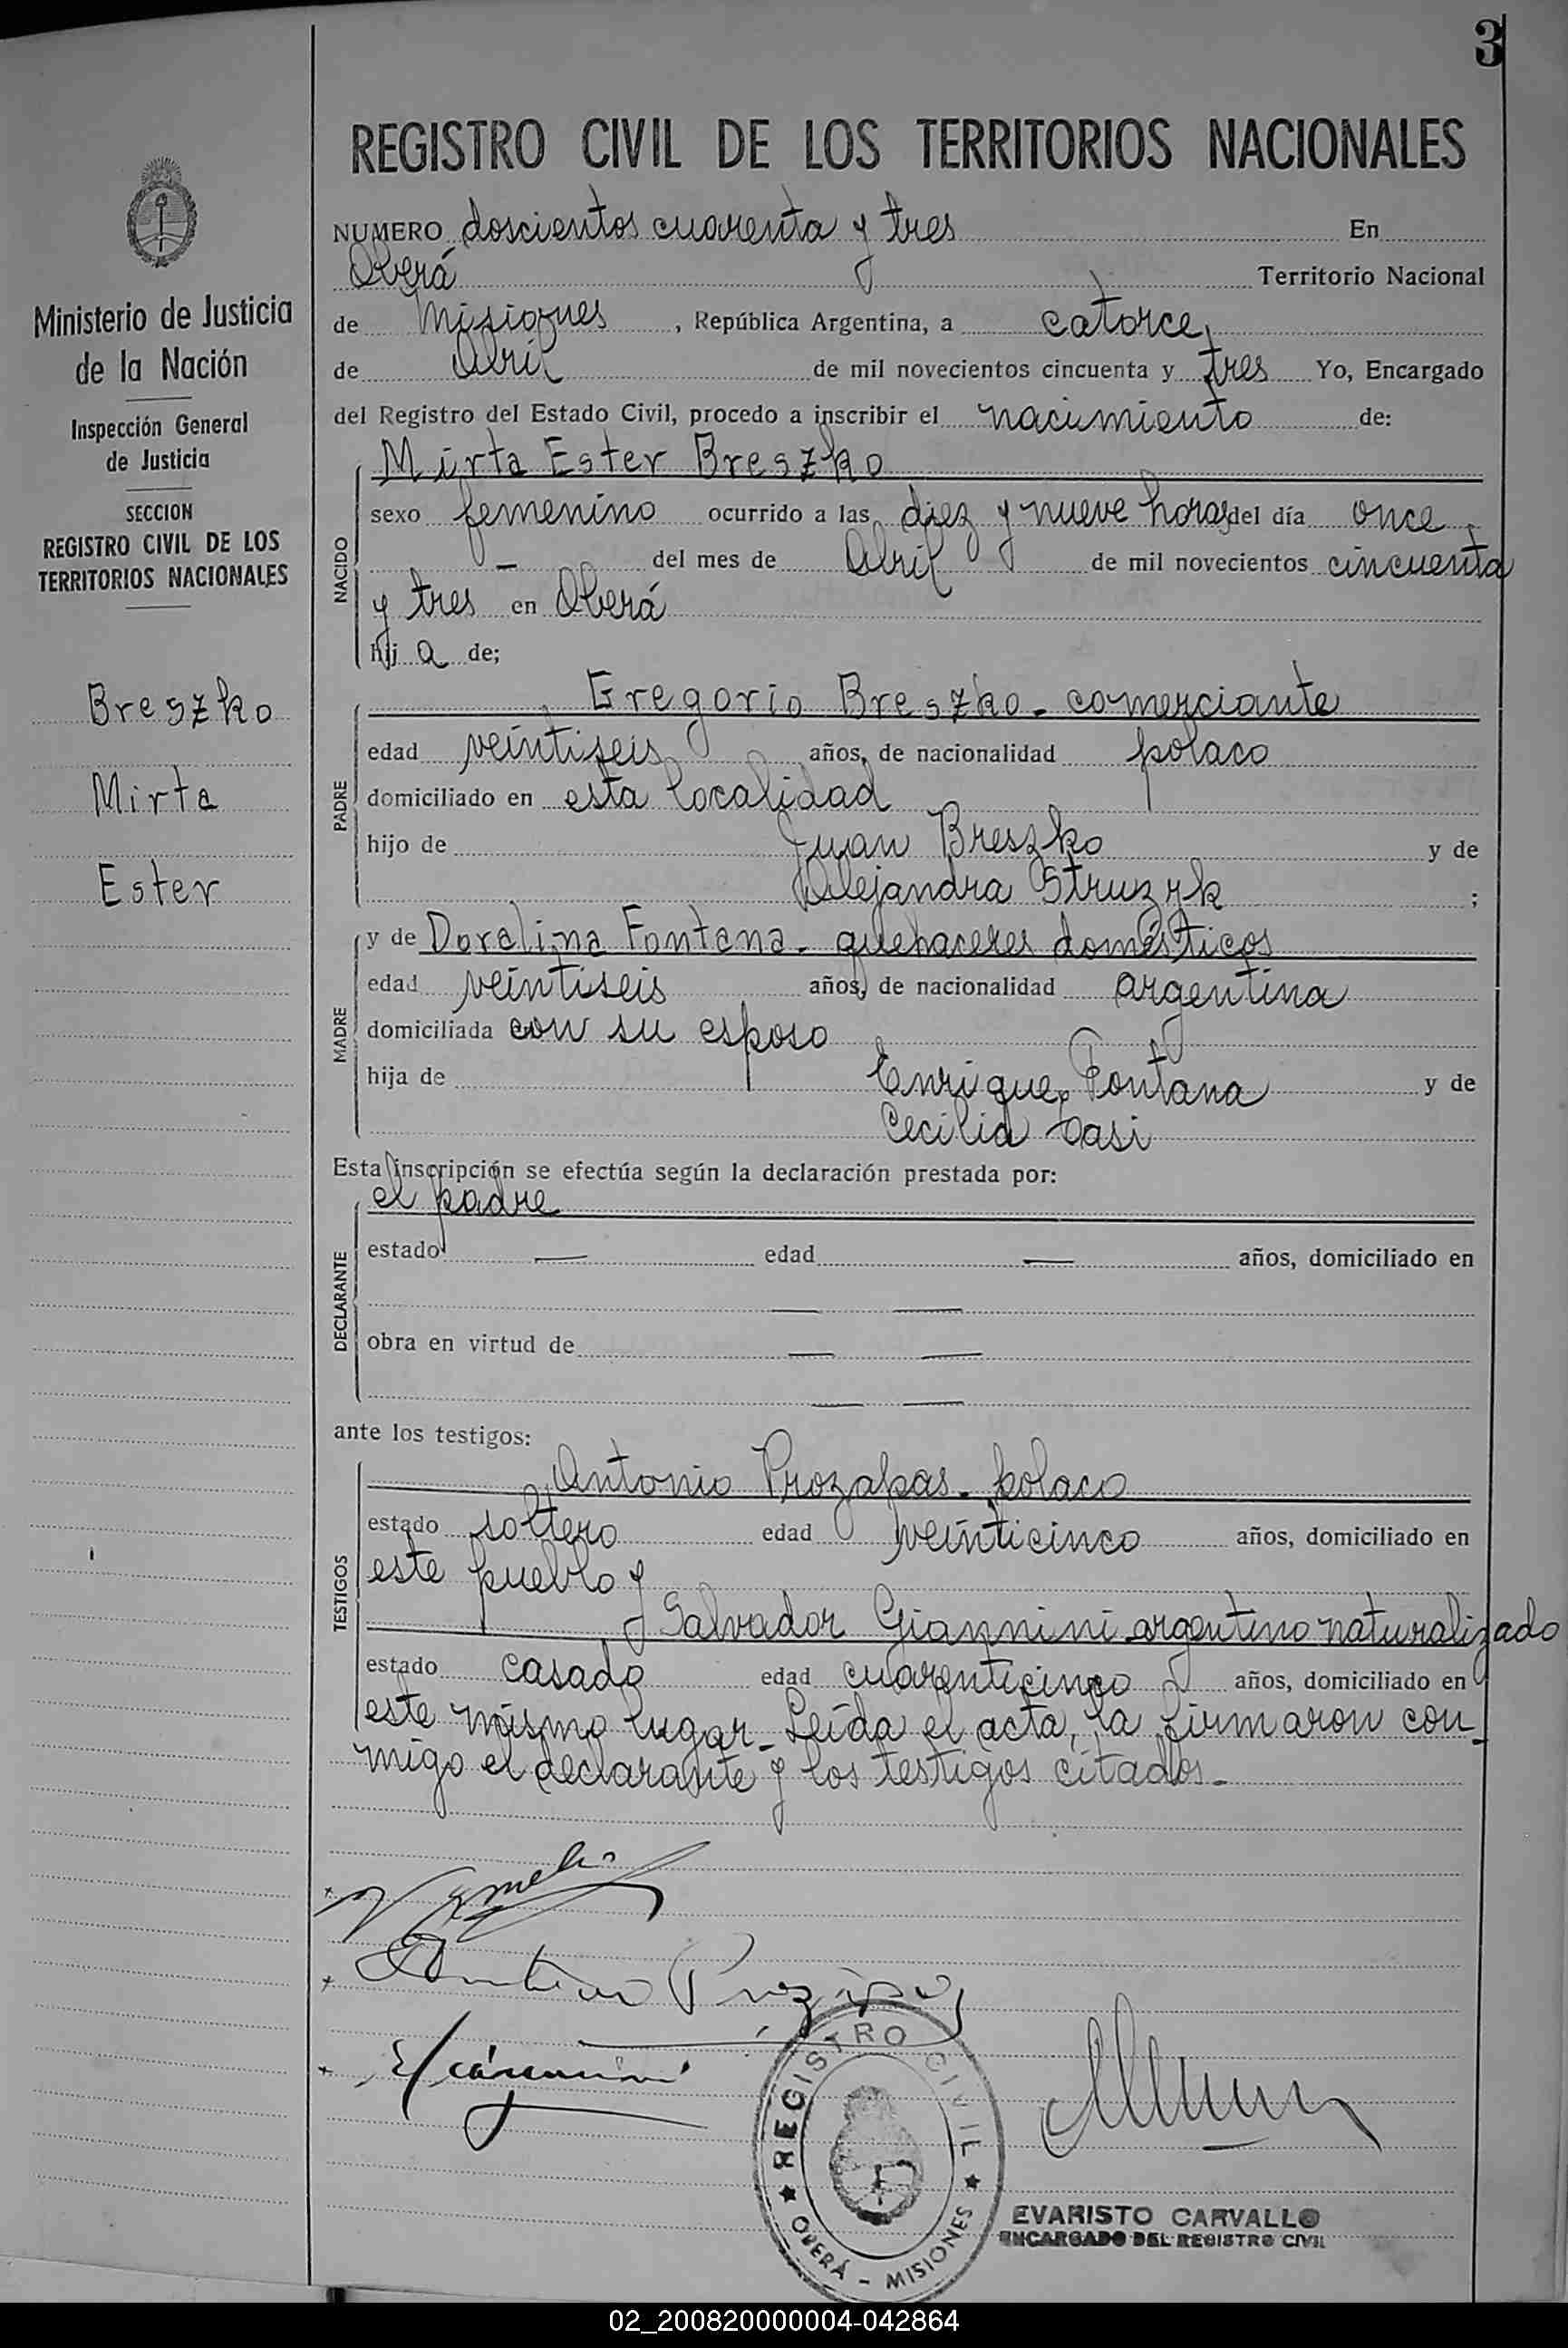 3
REGISTRO CIVIL DE LOS TERRITORIOS NACIONALES
NUMERO doscientos cuarenta y tres En
Oberá Territorio Nacional
de Misiones, República Argentina, a catorce
de Abril de mil novecientos cincuenta y tres Yo, Encargado
del Registro del Estado Civil, procedo a inscribir el nacimiento de:
Mirta Ester Breszko
sexo femenino ocurrido a las diez y nueve horas del día once
— del mes de Abril de mil novecientos cincuenta
y tres en Oberá
hij a de;
NACIDO
Gregorio Breszko - comerciante
edad veintiseis años, de nacionalidad polaco
domiciliado en esta localidad
hijo de Juan Breszko y de
Alejandra Struzyk ;
PADRE
y de Doralina Fontana - quehaceres domésticos
edad veintiseis años, de nacionalidad argentina
domiciliada con su esposo
hija de Enrique Fontana y de
Cecilia Casi
MADRE
Esta inscripción se efectúa según la declaración prestada por:
el padre
estado — edad — años, domiciliado en
— —
obra en virtud de — —
— —
DECLARANTE
ante los testigos:
Antonio Prozapas - polaco
estado soltero edad veinticinco años, domiciliado en
este pueblo y
Salvador Giannini argentino naturalizado
estado casado edad cuarenticinco años, domiciliado en
este mismo lugar - Leída el acta, la firmaron con-
migo el declarante y los testigos citados.-
TESTIGOS
Ministerio de Justicia
de la Nación
Inspección General
de Justicia
SECCION
REGISTRO CIVIL DE LOS
TERRITORIOS NACIONALES
Breszko
Mirta
Ester
REGISTRO CIVIL
OBERÁ - MISIONES
EVARISTO CARVALLO
ENCARGADO DEL REGISTRO CIVIL
02_200820000004-042864